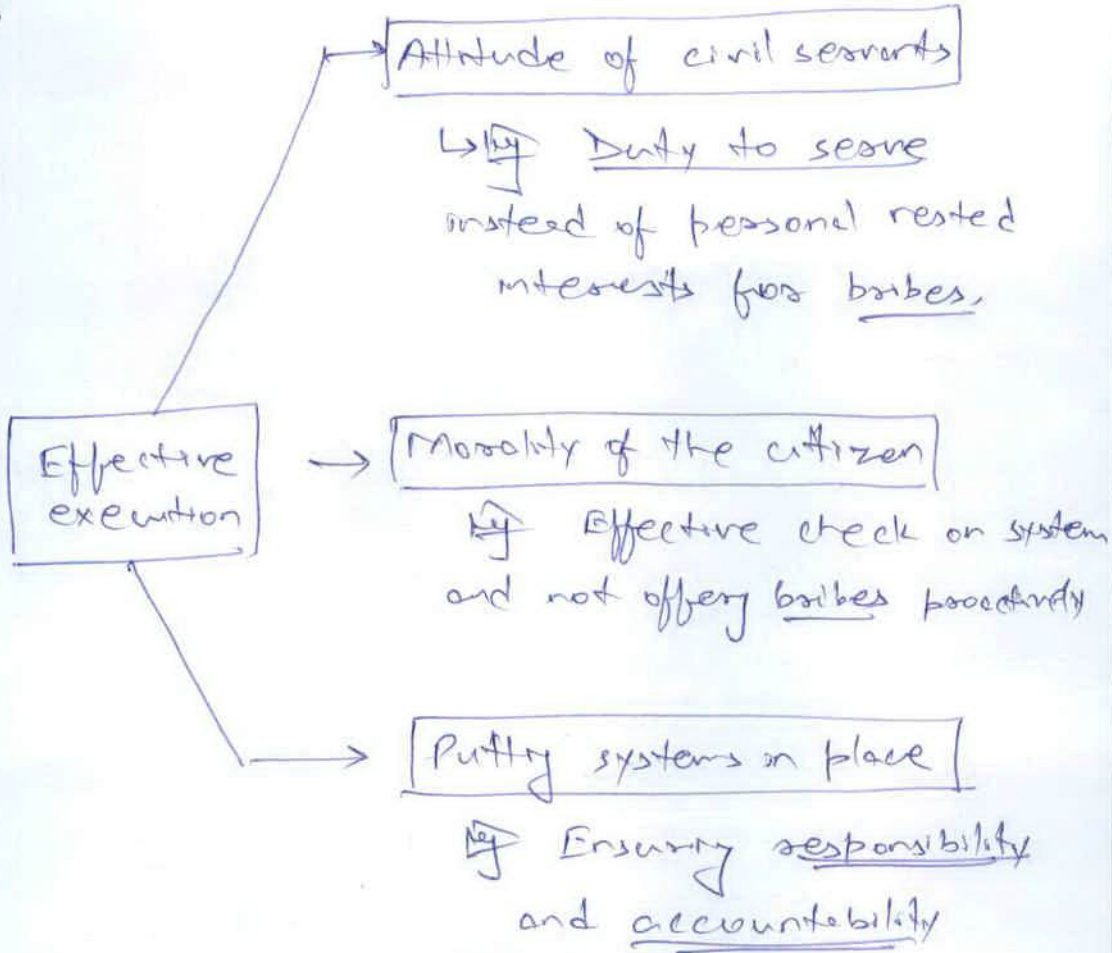 Attitude of civil servants
↳ eg Duty to serve
instead of personal vested
interests for bribes.
Effective
execution
→ Morality of the citizen
eg Effective check on system
and not offerg bribes proactively
Putting systems in place
eg Ensuring responsibility
and accountability